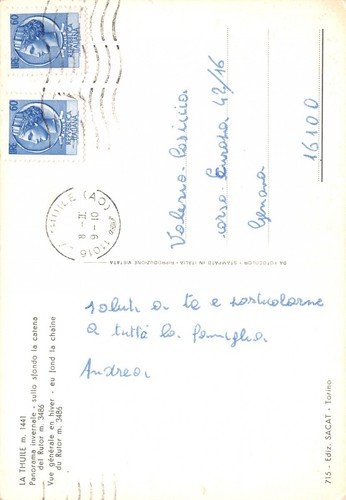 L. 60
POSTE
ITALIANE
L. 60
POSTE
ITALIANE
THUILE (AO)
8 - II.
9 - 10
11016
Valerio
corso 42/16
Genova
16100
DA FOTOCOLOR - STAMPATO IN ITALIA - RIPRODUZIONE VIETATA
saluti a te e
a tutta la famiglia
Andrea
LA THUILE m. 1441
Panorama invernale - sullo sfondo la catena
del Rutor m. 3486
Vue générale en hiver - eu fond la chaîne
du Rutor m. 3486
715 - Ediz. SACAT - Torino